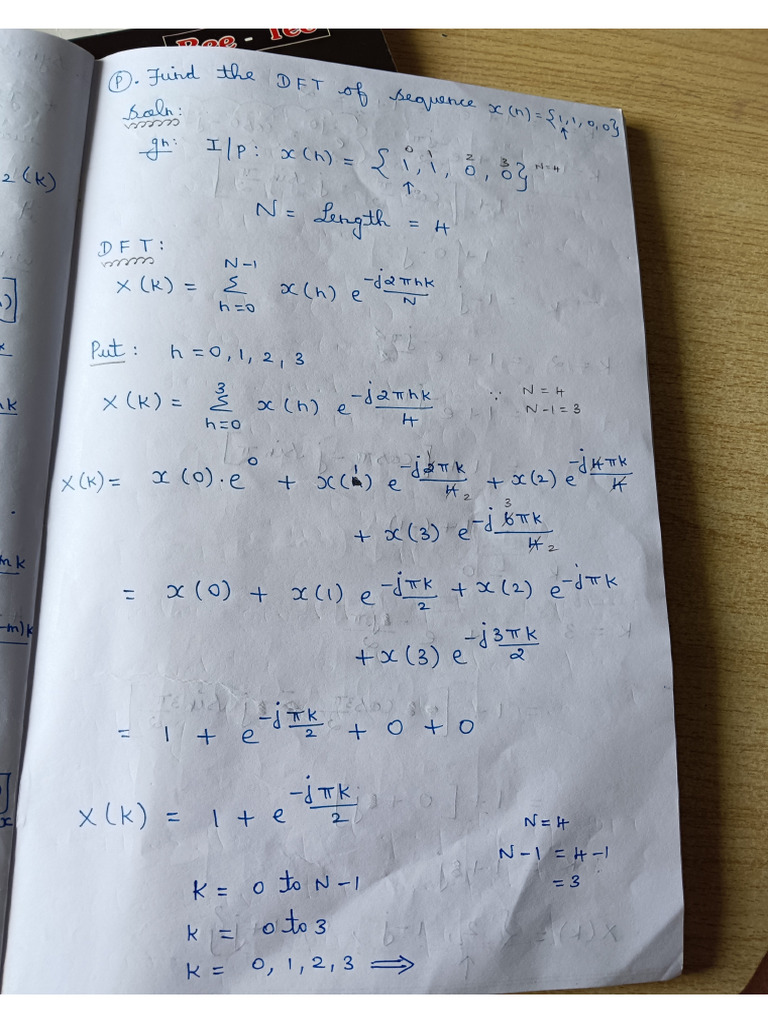 Bee - Tec
Ⓟ. Find the DFT of sequence x(n) = {1, 1, 0, 0}
↑
Soln:
Gn: I/p: x(n) = {1, 1, 0, 0} N=4
0 1 2 3
↑
N = Length = 4
DFT:
X(k) = Σ_{n=0}^{N-1} x(n) e^{-j2πnk/N}
Put: n = 0, 1, 2, 3
X(k) = Σ_{n=0}^{3} x(n) e^{-j2πnk/4} ∵ N = 4
N-1 = 3
X(k) = x(0)·e^0 + x(1) e^{-j2πk/4 2} + x(2) e^{-j4πk/4}
+ x(3) e^{-j 6 3 πk/4 2}
= x(0) + x(1) e^{-jπk/2} + x(2) e^{-jπk}
+ x(3) e^{-j3πk/2}
= 1 + e^{-jπk/2} + 0 + 0
X(k) = 1 + e^{-jπk/2}
N=4
N-1 = 4-1
= 3
K = 0 to N-1
K = 0 to 3
K = 0, 1, 2, 3 ⟹
2(k)
mk
-m)k